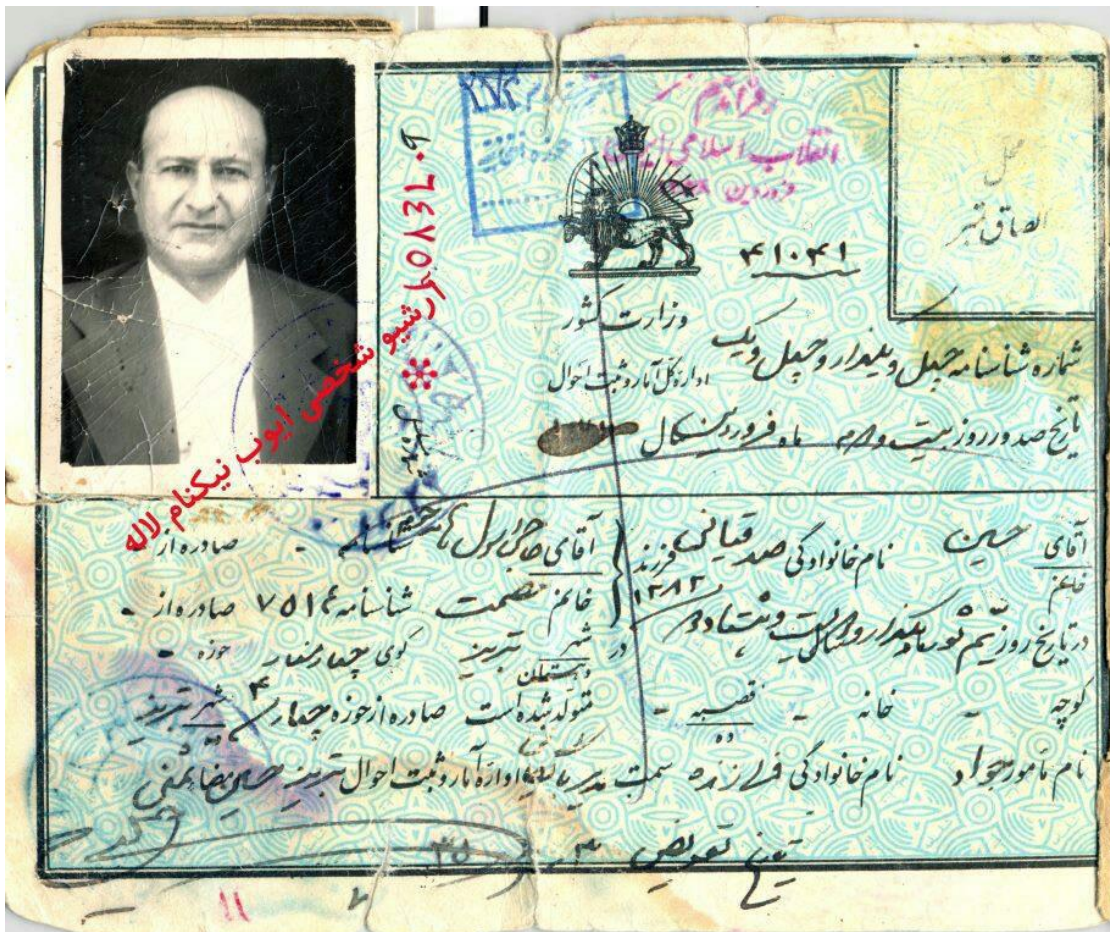 رفراندم
انقلاب اسلامی ایران
فروردین
محل
الصاق تمبر
۴۱۰۴۱
وزارت کشور
اداره کل آمار و ثبت احوال
شماره شناسنامه چهل و یکهزار و چهل و یک
تاریخ صدور روز بیست و ماه فروردین سال
آرشیو شخصی ایوب نیکنام لاله
آقای حسین نام خانوادگی صدقیانی فرزند آقای حاجی رسول شناسنامه - صادره از -
خانم
۱۲۸۲
خانم عصمت شناسنامه ۷۵۱۶ صادره از -
در تاریخ روز یکهزار و دویست و هشتاد و دو در شهر تبریز کوی چهارمنار حوزه -
دهستان
کوچه - خانه - قصبه - متولد شده است صادره از حوزه چهار ۴ شهر تبریز
ده
نام مأمور جواد نام خانوادگی فرازنده سمت اداره آمار و ثبت احوال تبریز
تاریخ تعویض ۳۵
۱۱